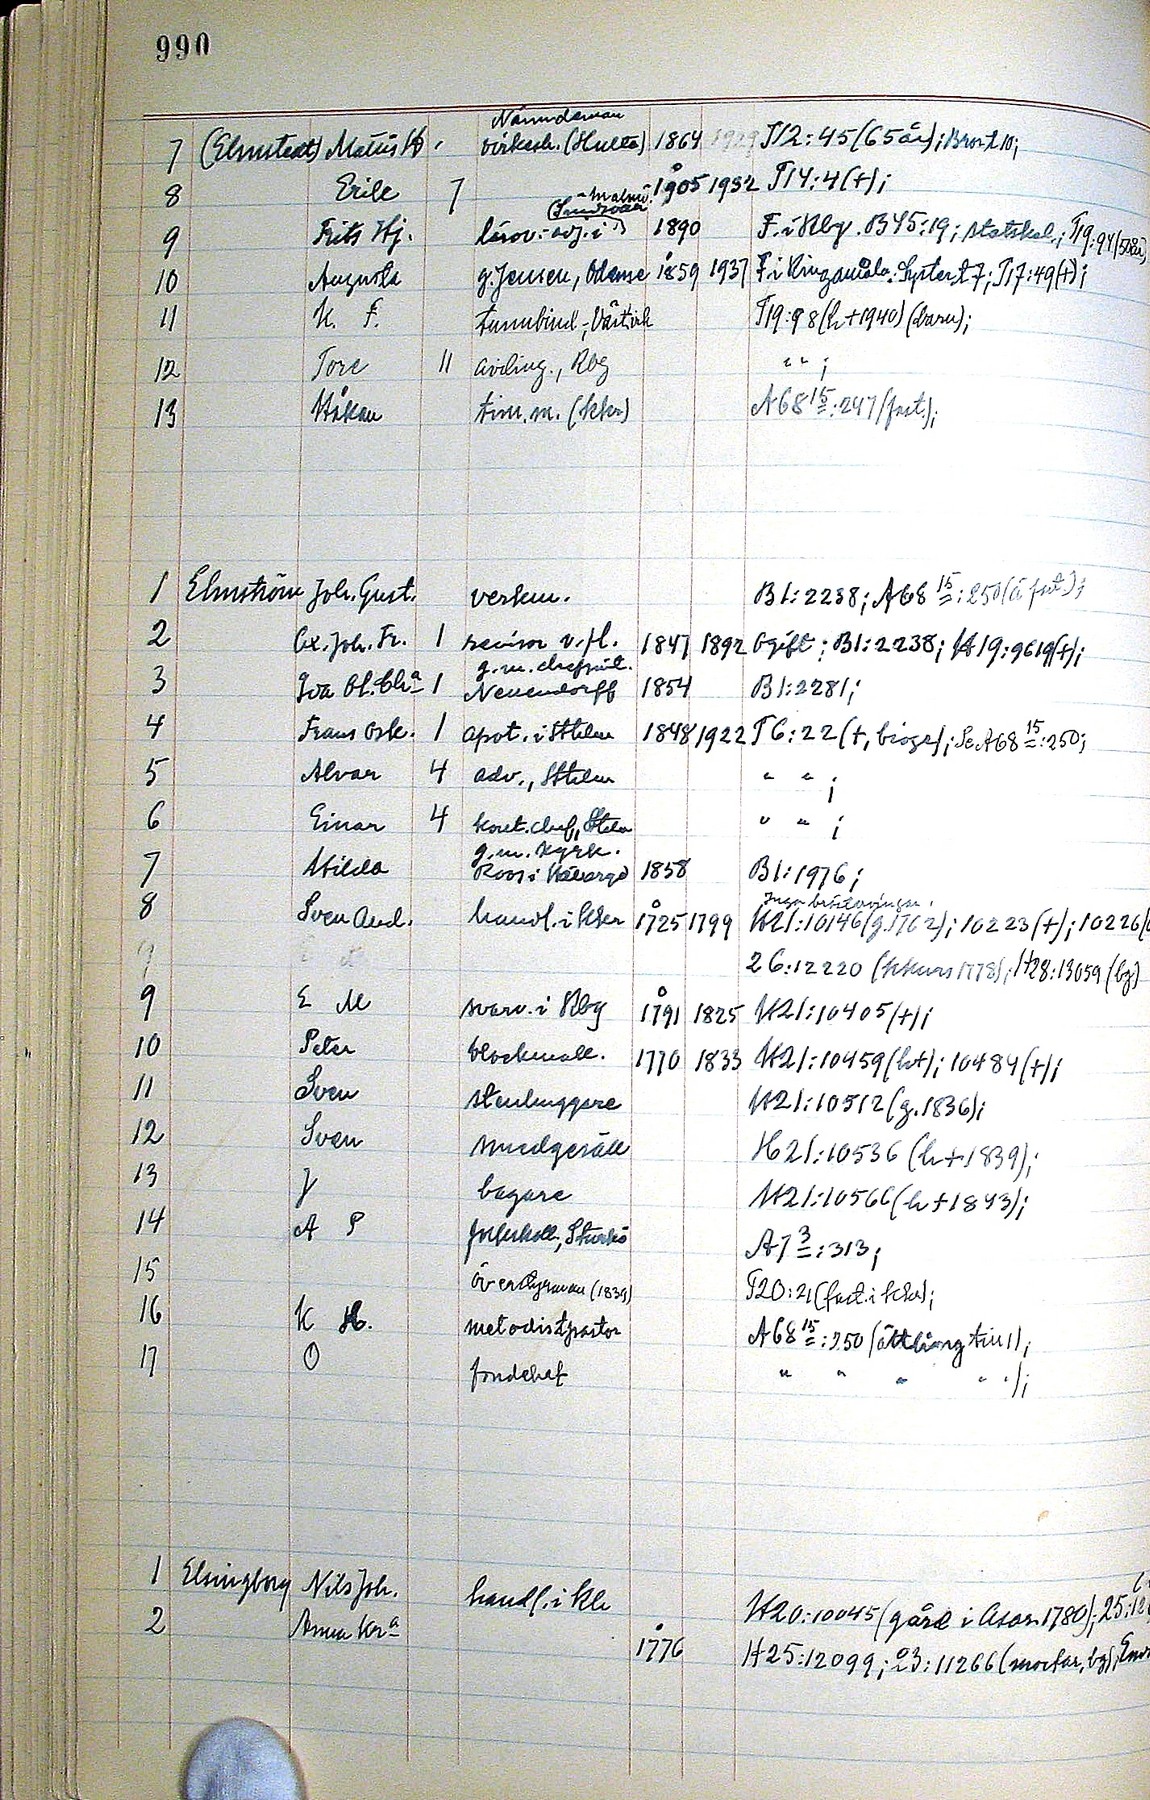 990
Nämndeman
7 (Elmstedt) Matts virkesh. (Hulta) 1864 1929 T12:45 (65 år); Bror t 10;
8 Erik 7 1905 1932 T14:4 (+);
Malmö
9 Frits Hj. lärov.-adj. i 1890 F. i Kbg. B45:19; statskal.; T19:94 (50 år)
10 Augusta g. Jensen, Odense 1859 1937 F. i Ringamåla. Syster t 7; T17:49 (+);
11 K. F. tunnbind., Västvik T19:98 (h + 1940) (barn);
12 Tore 11 avd.ing., Kbg " " ;
13 Håkan tim. m. (kkr) A68 15:247 (fast.);
1 Elmström Joh. Gust. verkm. B1:2238; A68 15:250
2 Ax. Joh. Fr. 1 revisor v. fl. 1847 1892 Ogift; B1:2238; H19:9619 (+);
g. m.
3 Ida Ol. Cha 1 Neuendorff 1854 B1:2281;
4 Frans Osk. 1 apot. i Sthlm 1848 1922 T6:22 (+, biogr); Se A68 15:250;
5 Alvar 4 adv., Sthlm " " ;
6 Einar 4 kont. chef, Sthlm " " ;
g. m. kyrk.
7 Hilda Roos i 1858 B1:1976;
Inga
8 Sven And. handl. i kkr 1725 1799 H21:10146 (g. 1762); 10223 (+); 10226
26:12220 (kkurs 1778); H28:13059 (bg)
9 E M svarv. i Kbg 1791 1825 H21:10405 (+);
10 Peter blockmak. 1770 1833 H21:10459 (h+); 10484 (+);
11 Sven stenhuggare H21:10512 (g. 1836);
12 Sven smedgesäll H21:10536 (h + 1839);
13 J bagare H21:10566 (h + 1843);
14 A P folkskoll., Sturkö A7 3:313;
15 överstyrman (1839) T20:21 (fast. i kkr);
16 K H. metodistpastor A68 15:250 (ättling till 1);
17 O fondchef " " " " ");
1 Elsingborg Nils Joh. handl. i kkr H20:10045 (gård i Asar. 1780); 25:12
2 Anna Kra 1776 H25:12099; 23:11266 (mostar, bg);